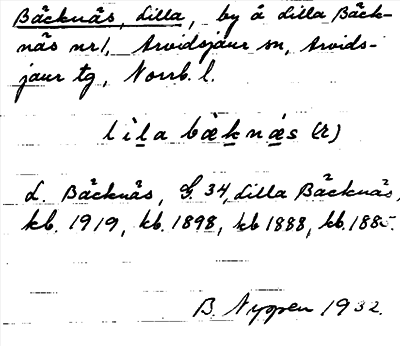 Bäcknäs, Lilla, by å Lilla Bäck-
näs nr 1, Arvidsjaur sn, Arvids-
jaur tg, Norrb. l.
lìla bæknæs (R)
L. Bäcknäs, G. 34, Lilla Bäcknäs,
kb. 1919, kb. 1898, kb 1888, kb. 1885.
B. Nyppen 1932.